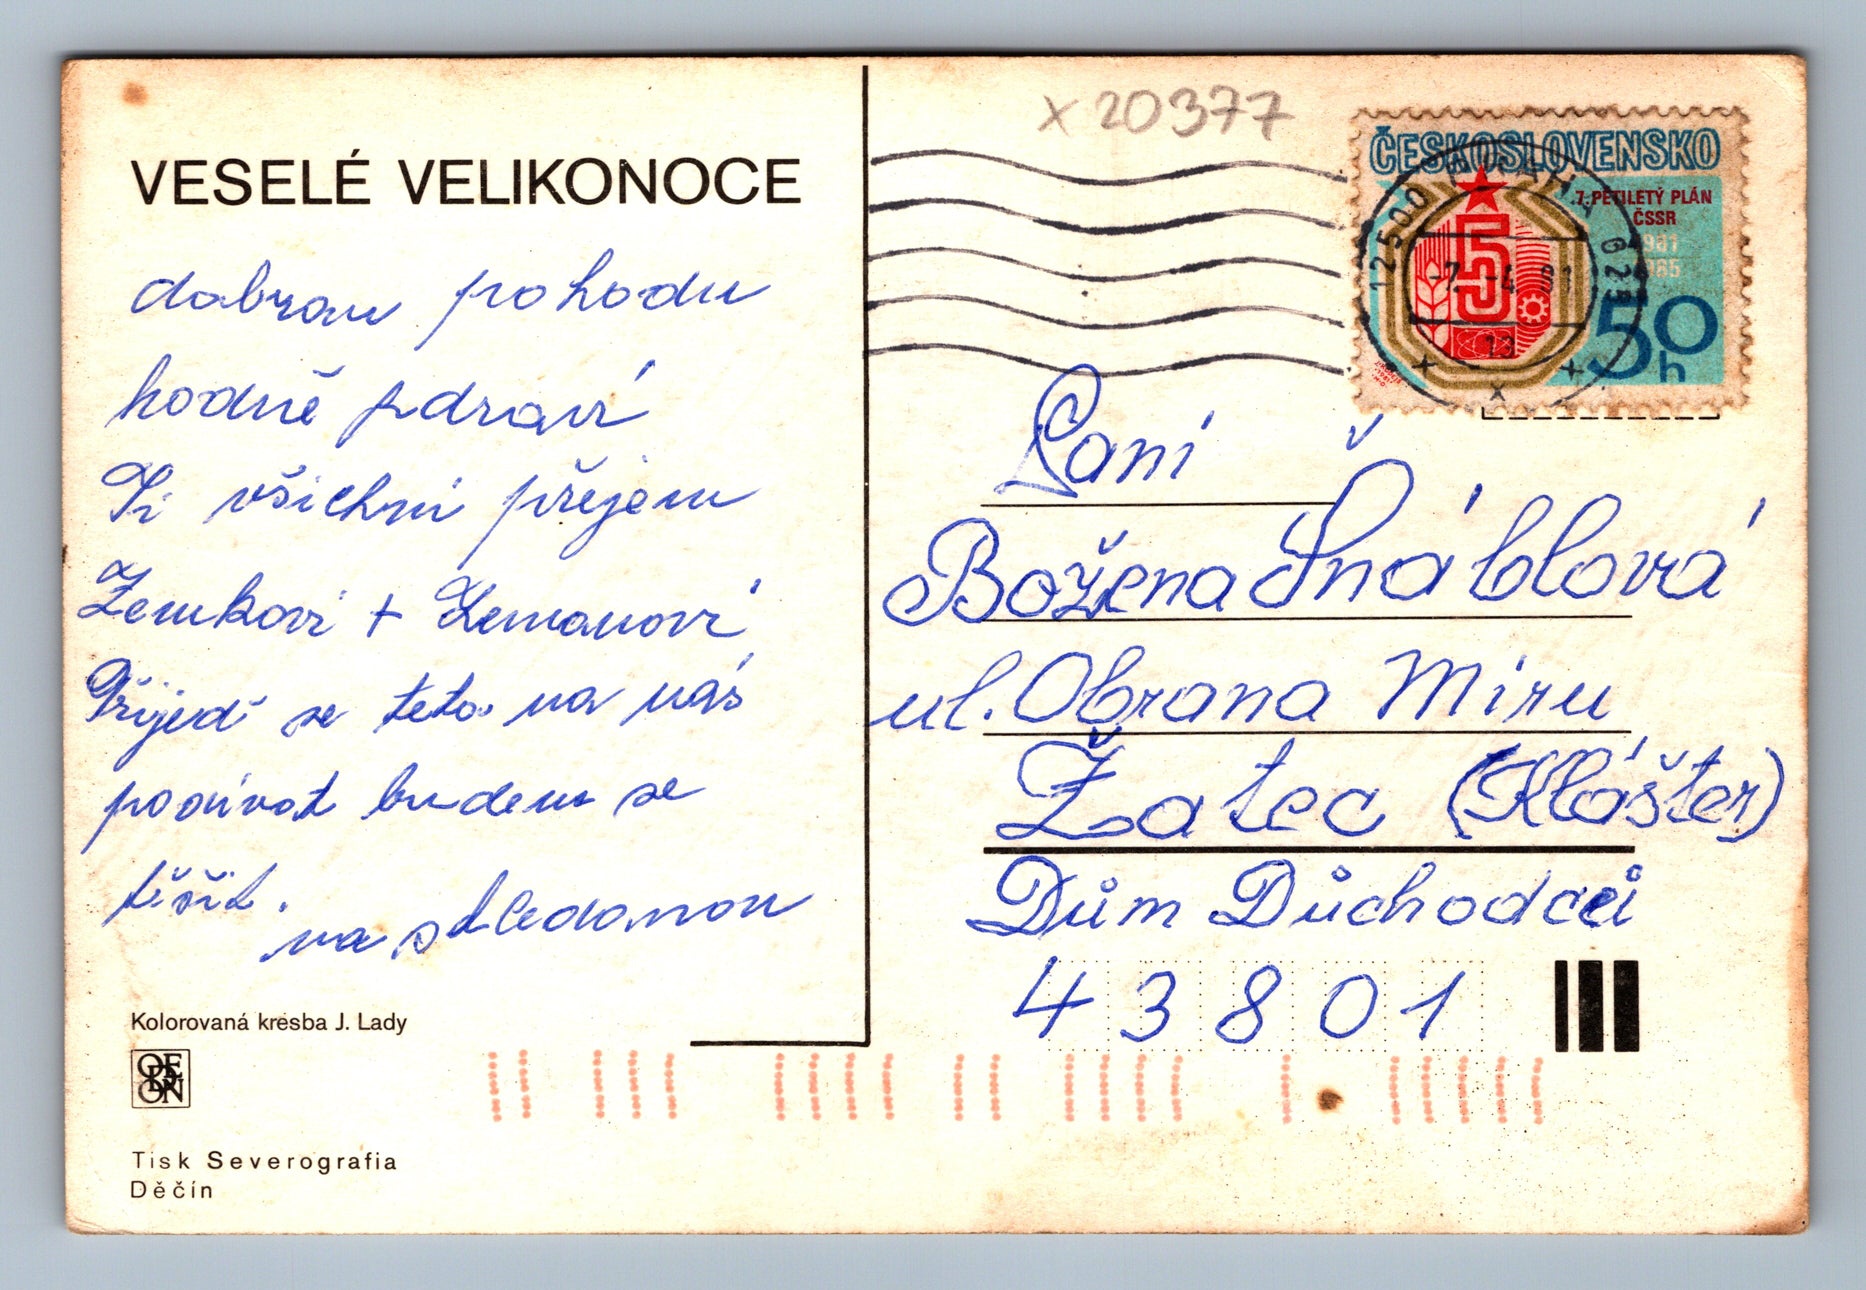 x 20377
VESELÉ VELIKONOCE
dobrou pohodu
hodně zdraví
Ti všichni přejem
Zemkovi + Zemanovi
Přijeď se teto na nás
podívat budem se
těšit.
na shledanou
Kolorovaná kresba J. Lady
ODEON
Tisk Severografia
Děčín
ČESKOSLOVENSKO
7. PĚTILETÝ PLÁN
ČSSR
1981
1985
5
50
h
12500 PRAHA 025
-7.-4. 81
13
Paní
Božena Šnáblová
ul. Obrana Míru
Žatec (Klášter)
Dům Důchodců
43801